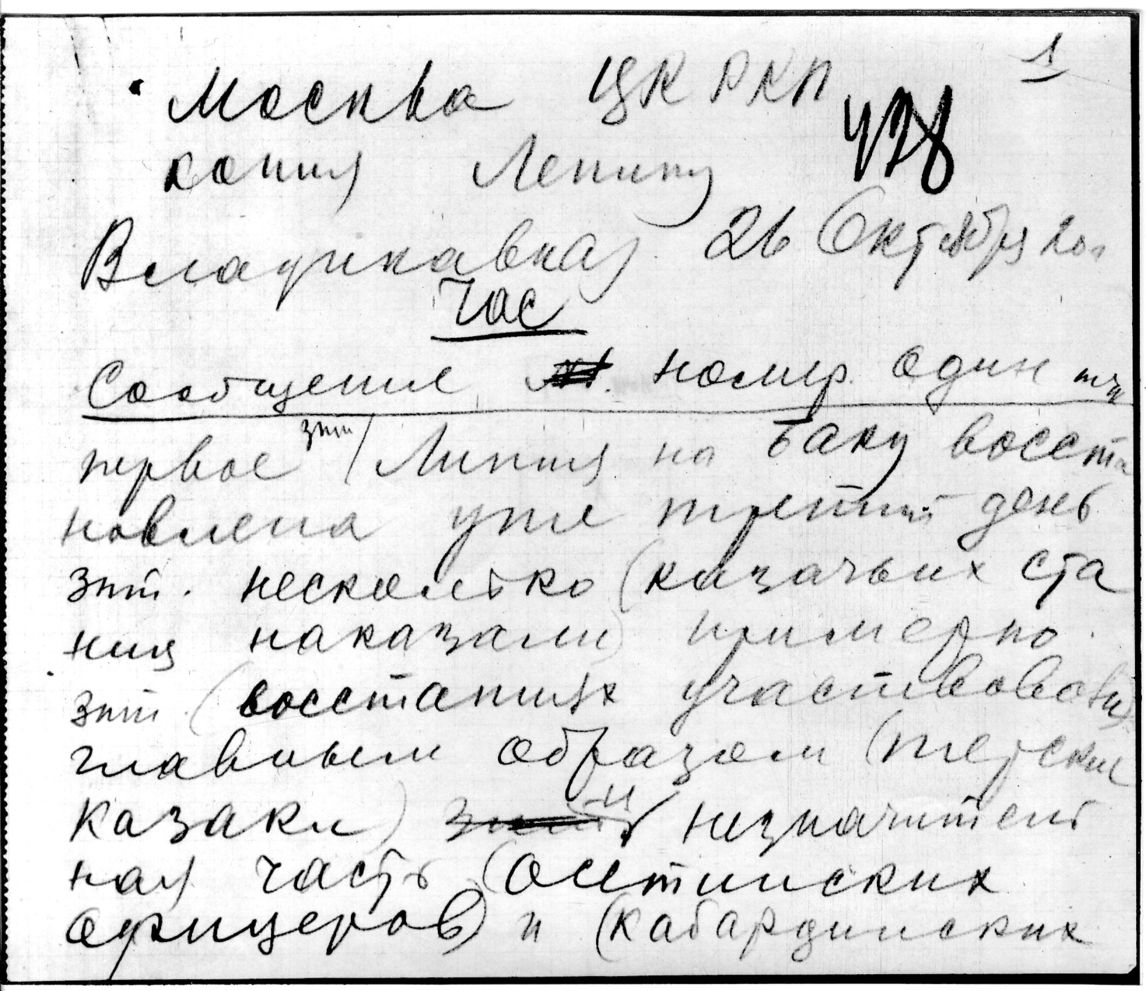 1
Москва ЦК РКП
копия Ленину
Владикавказ 26 Октября 20
Час
Сообщение номер один тчк
зпт
первое / Линия на Баку восста
новлена уже третий день
зпт. несколько (казачьих ста
ниц наказали) примерно
зпт (восстаниях участвовали
главным образом (терские
казаки) и незначитель
ная часть (осетинских
офицеров) и (кабардинских